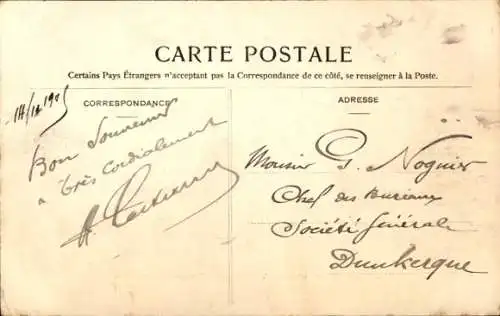 CARTE POSTALE
Certains Pays Étrangers n'acceptant pas la Correspondance de ce côté, se renseigner à la Poste.
CORRESPONDANCE
Bon Souvenir
à très Cordialement
ADRESSE
Monsieur G. Noguier
Chef des Bureaux
Société Générale
Dunkerque